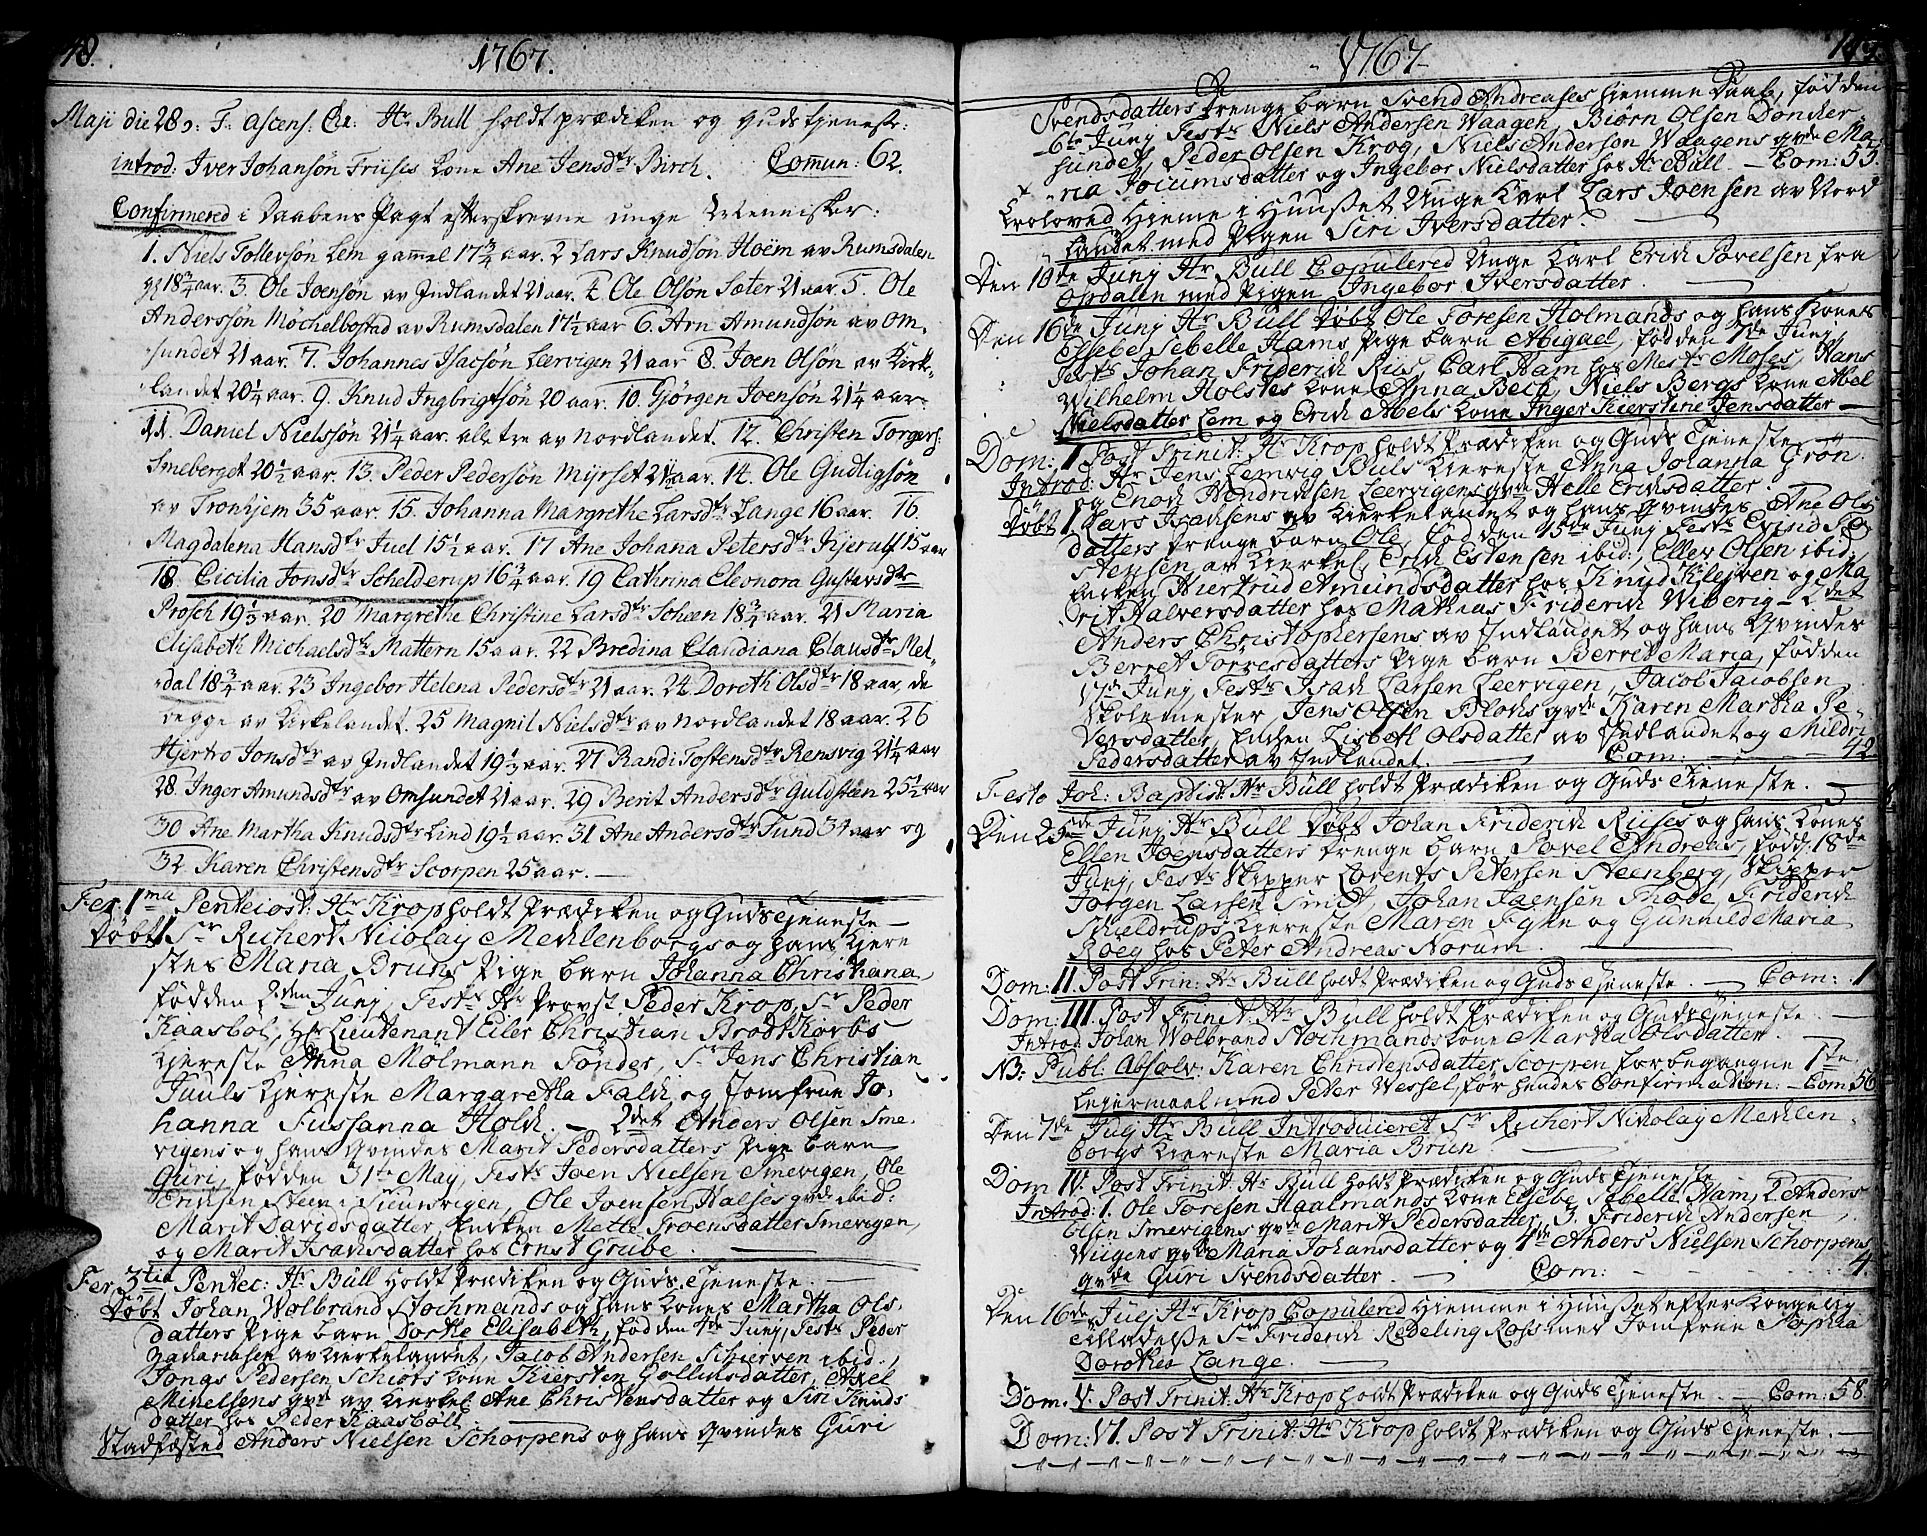 48. 1767.
Maji die 28 ɔ: F. Ascens: Chr: Hr Bull holdt prædiken og gudstjeneste:
introd: Iver Johansøn Friises Kone Ane Jensdtr Birch. Comun: 62.
Confirmered i Daabens Pagt efterskrevne unge Mennisker:
1. Niels Tollevsøn Lem gammel 17 3/4 aar. 2 Lars Knudsøn Hoëm av Rumsdalen
gl 18 3/4 aar. 3. Ole Joensøn av Indlandet 21 aar. 4. Ole Olsøn Sæter 21 aar. 5. Ole
Anderssøn Möchelbostad av Rumsdalen 17 1/2 aar 6. Arn Amundsøn av Om-
sundet 21 aar. 7. Johannes Isacsøn Leervigen 21 aar 8. Joen Olsøn av Kirke-
landet 20 1/4 aar. 9. Knud Ingbrigtsøn 20 aar. 10. Gjörgen Joensøn 21 1/4 aar.
11. Daniel Nielssøn 21 1/4 aar. alle tre av Nordlandet. 12. Christen Torgers:
Smeberget 20 1/2 aar. 13. Peder Pedersøn Myrset 21 1/2 aar. 14. Ole Gudligsøn
av Tronhjem 35 aar. 15. Johanna Margrethe Larsdtr Lange 16 aar. 16
Magdalena Hansdtr Juel 15 1/2 aar. 17 Ane Johana Petersdtr Kjerulf 15 aar
18. Cicilia Jonsdtr Schelderup 16 3/4 aar. 19 Cathrina Eleonora Gustavsdtr
Prosch 19 1/3 aar. 20 Margrethe Christine Larsdtr Scheen 18 3/4 aar. 21 Maria
Elisabeth Michaelsdtr Mattern 15 aar. 22 Bredina Claudiana Clausdtr Mel-
dal 18 3/4 aar. 23 Ingebor Helena Pedersdtr 21 aar. 24 Doroth Olsdtr 18 aar, de
begge av Kirkelandet. 25 Magnil Nielsdtr av Nordlandet 18 aar. 26
Hjertrø Jonsdtr av Indlandet 19 1/3 aar. 27 Randi Tostensdtr Rensvig 21 1/4 aar
28. Inger Amundsdtr av Omsundet 21 aar. 29 Berit Andersdtr Guldsteen 25 1/2 aar
30 Ane Martha Knudsdtr Lind 19 1/2 aar. 31 Ane Andersdtr Tund 31 aar og
32. Karen Christensdtr Scorpen 25 aar.
Fer. 1ma Pentecost: Hr Krop holdt Prædiken og Guds Tjeneste
Døbt 1 Sr Richert Nicolay Mechlenborgs og hans Kjere
stes Maria Bruns Pige barn Johanna Christiana,
fødden 2den Junj, Testr Hr Provst Peder Krop, Sr Peder
Kaasbøl, Hr Lieutenant Eiler Christian Brodtkorbs
Kjereste Anna Molmann Tønder, Sr Jens Christian
Juuls Kjereste Margaretha Falch og Jomfrue Jo-
hanna Sussanna Holch. 2det Anders Olsen Sme-
vigens og hans Qvindes Marit Pedersdatters Pige barn
Guri, fødden 31te May, Testr Joen Nielsen Smevigen, Ole
Erichsen Steen i Smevigen, Ole Joensen Halses qvde ibid:
Marit Davidsdatter, Enken Mette Troensdatter Smevigen,
og Marit Isachsdatter hos Ernst Grube.
Fer. 3tia Pentec: Hr Bull holdt Prædiken og Guds Tjeneste.
Døbt Johan Wolbrand Stochmands og hans Kones Martha Ols-
datters Pige barn Dorthe Elisabeth, fødden 4de Junj, Testr Peder
Zachariasen av Kierkelandet, Jacob Andersen Schierven ibid.,
Jongs Pedersen Schiørs Kone Kiersten Gollichsdatter, Axel
Michelsens qvde av Kierkel. Ane Christensdatter og Siri Knuds
datter hos Peder Kaasbøll.
Stadfæsted Anders Nielsen Schorpens og hans Qvindes Guri
1767 149.
Svendsdatters Drenge barn Svend Andreases hiemme Daab, født den
6te Junj Testr Niels Andersen Waagen, Biørn Olsen Doncker-
sundet, Peder Olsen Krog, Niels Anderson Waagens qvde Ma-
ria Jocumsdatter og Ingebor Nielsdatter hos Hr Bull. Com: 53.
Troloved Hieme i Huuset Unge Karl Lars Joensen av Nord
Landet med Pigen Siri Iversdatter.
Den 10de Junj Hr Bull Copulered Unge Karl Erich Povelsen fra
Ordalen med Pigen Ingebor Iversdatter.
Den 16de Junj Hr Bull Døbt Ole Toresen Holmands og hans Kones
Elsebe Sebelle Hams Pige barn Abigael, fødden 7de Junj,
Testr Johan Friderich Riis, Carl Ham hos Mestr Moses, Hans
Wilhelm Holstes Kone Anna Bech, Niels Bergs Kone Abel
Nielsdatter Lem og Erich Abels Kone Inger Kierstine Jensdatter
Dom: 1 Post Trinit: Hr Krop holdt Prædiken og Guds Tjeneste
Introd: Hr Jens Lemvig Buls Kiereste Anna Johanna Grön
og Enoch Hendrichsen Leervigens qvde Helle Erichsdatter
Døbt 1 Lars Isachsens av Kierkelandet og hans Qvindes Ane Ols
datters Drenge barn Ole, fødden 15de Junj Testr Evind
Stensen av Kierkel, Erich Estensen ibid:, Ellev Olsen ibid:
Encken Hiertrud Amundsdatter hos Knud Kleven og Ma-
rit Halversdatter hos Mathias Friderich Wiberig. 2det
Anders Christophersens av Indlandet og hans Qvindes
Berret Torresdatters Pige barn Berret Maria, fødden
17de Junj, Testr Isach Larsen Leervigen, Jacob Jacobsen
Skolemester, Jens Olsen Blochs qvde Karen Martha Pe-
dersdatter, Encken Lisbeth Olsdatter av Indlandet og Mildri
Pedersdatter av Indlandet. Com: 42
Festo Joh: Baptist: Hr Bull holdt Prædiken og Guds Tjeneste.
Den 25de Junj Hr Bull Døbt Johan Friderich Riises og hans Kones
Ellen Joensdatters Drenge barn Povel Andreas, født 18de
Junj, Testr Skipper Lorents Petersen Steenberg, Skipper
Jørgen Larsen Smit, Johan Joensen Thode, Friderich
Schieldrups Kiereste Maren Fyhn og Gunnild Maria
Koeg hos Peter Andreas Norum.
Dom: II. Post Trin: Hr Bull holdt Prædiken og Guds Tjeneste. Com: 1
Dom: III. Post Trinit: Hr Bull holdt Prædiken og Guds Tjeneste.
Introd Johan Wolbrand Stochmands Kone Martha Olsdatter.
NB: Publ: Absolv: Karen Christensdatter Scorpen for begangne 1ste
Lejermaal med Peder Wessel, før hendes Confirmation. Com 56
Den 7de Julj Hr Bull Introducieret Sr Richert Nikolay Mechlen-
borgs Kiereste Maria Brun
Dom IV. Post Trinit: Hr Bull holdt Prædiken og Guds Tjeneste
Introd: 1. Ole Toresen Haalmands Kone Elsebe Sebelle Ham, 2 Anders
Olsen Smevigens qvde Marit Pedersdatter, 3. Friderich Andersen
Wiigens qvde Maria Johansdatter og 4de Anders Nielsen Schorpens
qvde Guri Svendsdatter. Com: 4.
Den 16de Julj Hr Krop Copulered Hiemme i Huuset efter Kongelig
Tilladelsse Sr Friderich Redeling Ross med Jomfrue Sophia
Dorothea Lange.
Dom. V. Post Trinit: Hr Krop holdt Prædiken og Guds Tjeneste. Com: 58
Dom: VI. Post Trinit: Hr Krop holdt Prædiken og Guds Tjeneste.